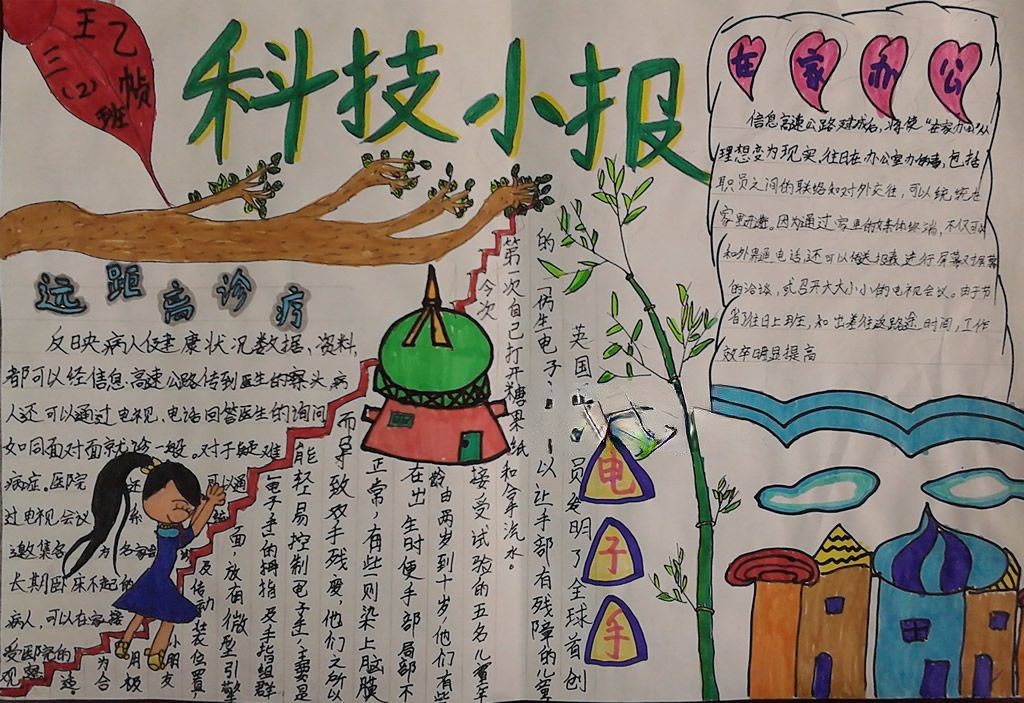 王乙帧
三(2)班
科技小报
在家办公
信息高速公路建成后,将使“在家办公”从
理想变为现实,往日在办公室办的事,包括
职员之间的联络和对外交往,可以统统在
家里进行。因为通过家里的多媒体终端,不仅可以
和外界通电话还可以传送报表进行屏幕对屏幕
的洽谈,或召开大大小小的电视会议。由于节
省往日上班,和出差往返路途时间,工作
效率明显提高
远距离诊疗
反映病人健康状况数据、资料,
都可以经信息高速公路传到医生的案头,病
人还可以通过电视、电话回答医生的询问
如同面对面就诊一般。对于疑难
病症。医院还可以通
过电视会议系
邀集客为名
长期卧床不起的
病人,可以在家接
受医院的
观察
电子手
英国
员发明了全球首创
的“仿生电子
以让手部有残障的儿童
第一次自己打开糖果纸和拿手流水。
今次
接受试验的五名儿童年
龄由两岁到十岁,他们有些
在出生时便手部局部不
正常,有些则染上脑膜
而导致双手残废,他们之所以
能轻易控制电子手,主要是
电子手的拇指及手指组群
面,放有微型引擎
及传动装位置
小朋友